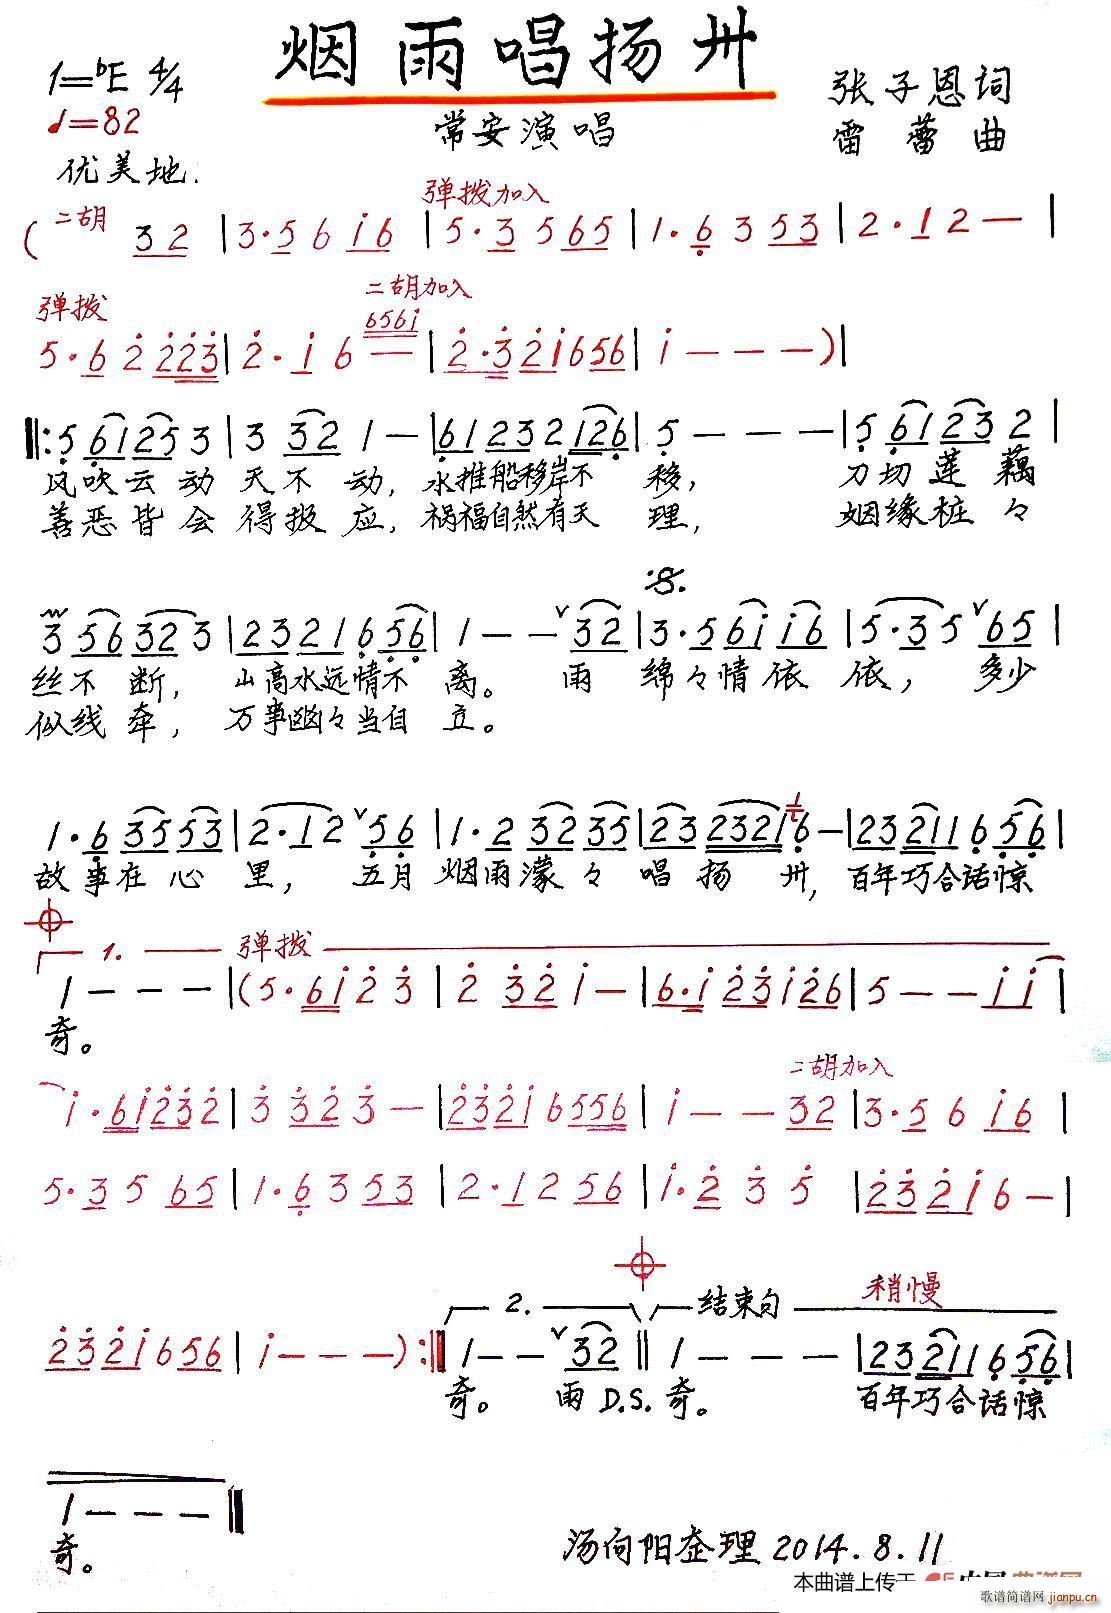 烟雨唱扬州
1=♭E 4/4
♩=82
常安演唱
张子恩词
雷蕾曲
优美地.
弹拨加入
( 二胡 3 2 | 3·5 6 i 6 | 5·3 5 6 5 | 1·6 3 5 3 | 2·1 2 — |
弹拨
二胡加入
656i
5·6 2 2 2 3 | 2·i 6 — | 2·3 2 i 6 5 6 | i — — — ) |
‖: 5 6 1 2 5 3 | 3 3 2 1 — | 6 1 2 3 2 1 2 6 | 5 — — — | 5 6 1 2 3 2 |
风吹云动天不动, 水推船移岸不移, 刀切莲藕
善恶皆会得报应, 祸福自然有天理, 姻缘桩々
3 5 6 3 2 3 | 2 3 2 1 6 5 6 | 1 — — ∨ 3 2 | 3·5 6 i i 6 | 5·3 5 ∨ 6 5 |
丝不断, 山高水远情不离。 雨绵々情依依, 多少
似线牵, 万事幽々当自立。
1·6 3 5 5 3 | 2·1 2 ∨ 5 6 | 1·2 3 2 3 5 | 2 3 2 3 2 1 6 — | 2 3 2 1 1 6 5 6 |
故事在心里, 五月烟雨濛々唱扬州, 百年巧合话惊
1. 弹拨
1 — — — | ( 5·6 i 2 3 | 2 3 2 i — | 6·i 2 3 i 2 6 | 5 — — i i |
奇。
二胡加入
i·6 i 2 3 2 | 3 3 2 3 — | 2 3 2 i 6 5 5 6 | i — — 3 2 | 3·5 6 i 6 |
5·3 5 6 5 | 1·6 3 5 3 | 2·1 2 5 6 | i·2 3 5 | 2 3 2 i 6 — |
2. 结束句 稍慢
2 3 2 i 6 5 6 | i — — — ) :‖ 1 — — ∨ 3 2 ‖ 1 — — — | 2 3 2 1 1 6 5 6 |
奇。 雨 D.S. 奇。 百年巧合话惊
1 — — — ‖
奇。
汤向阳整理 2014.8.11
本曲谱上传于
歌谱简谱网
jianpu.cn